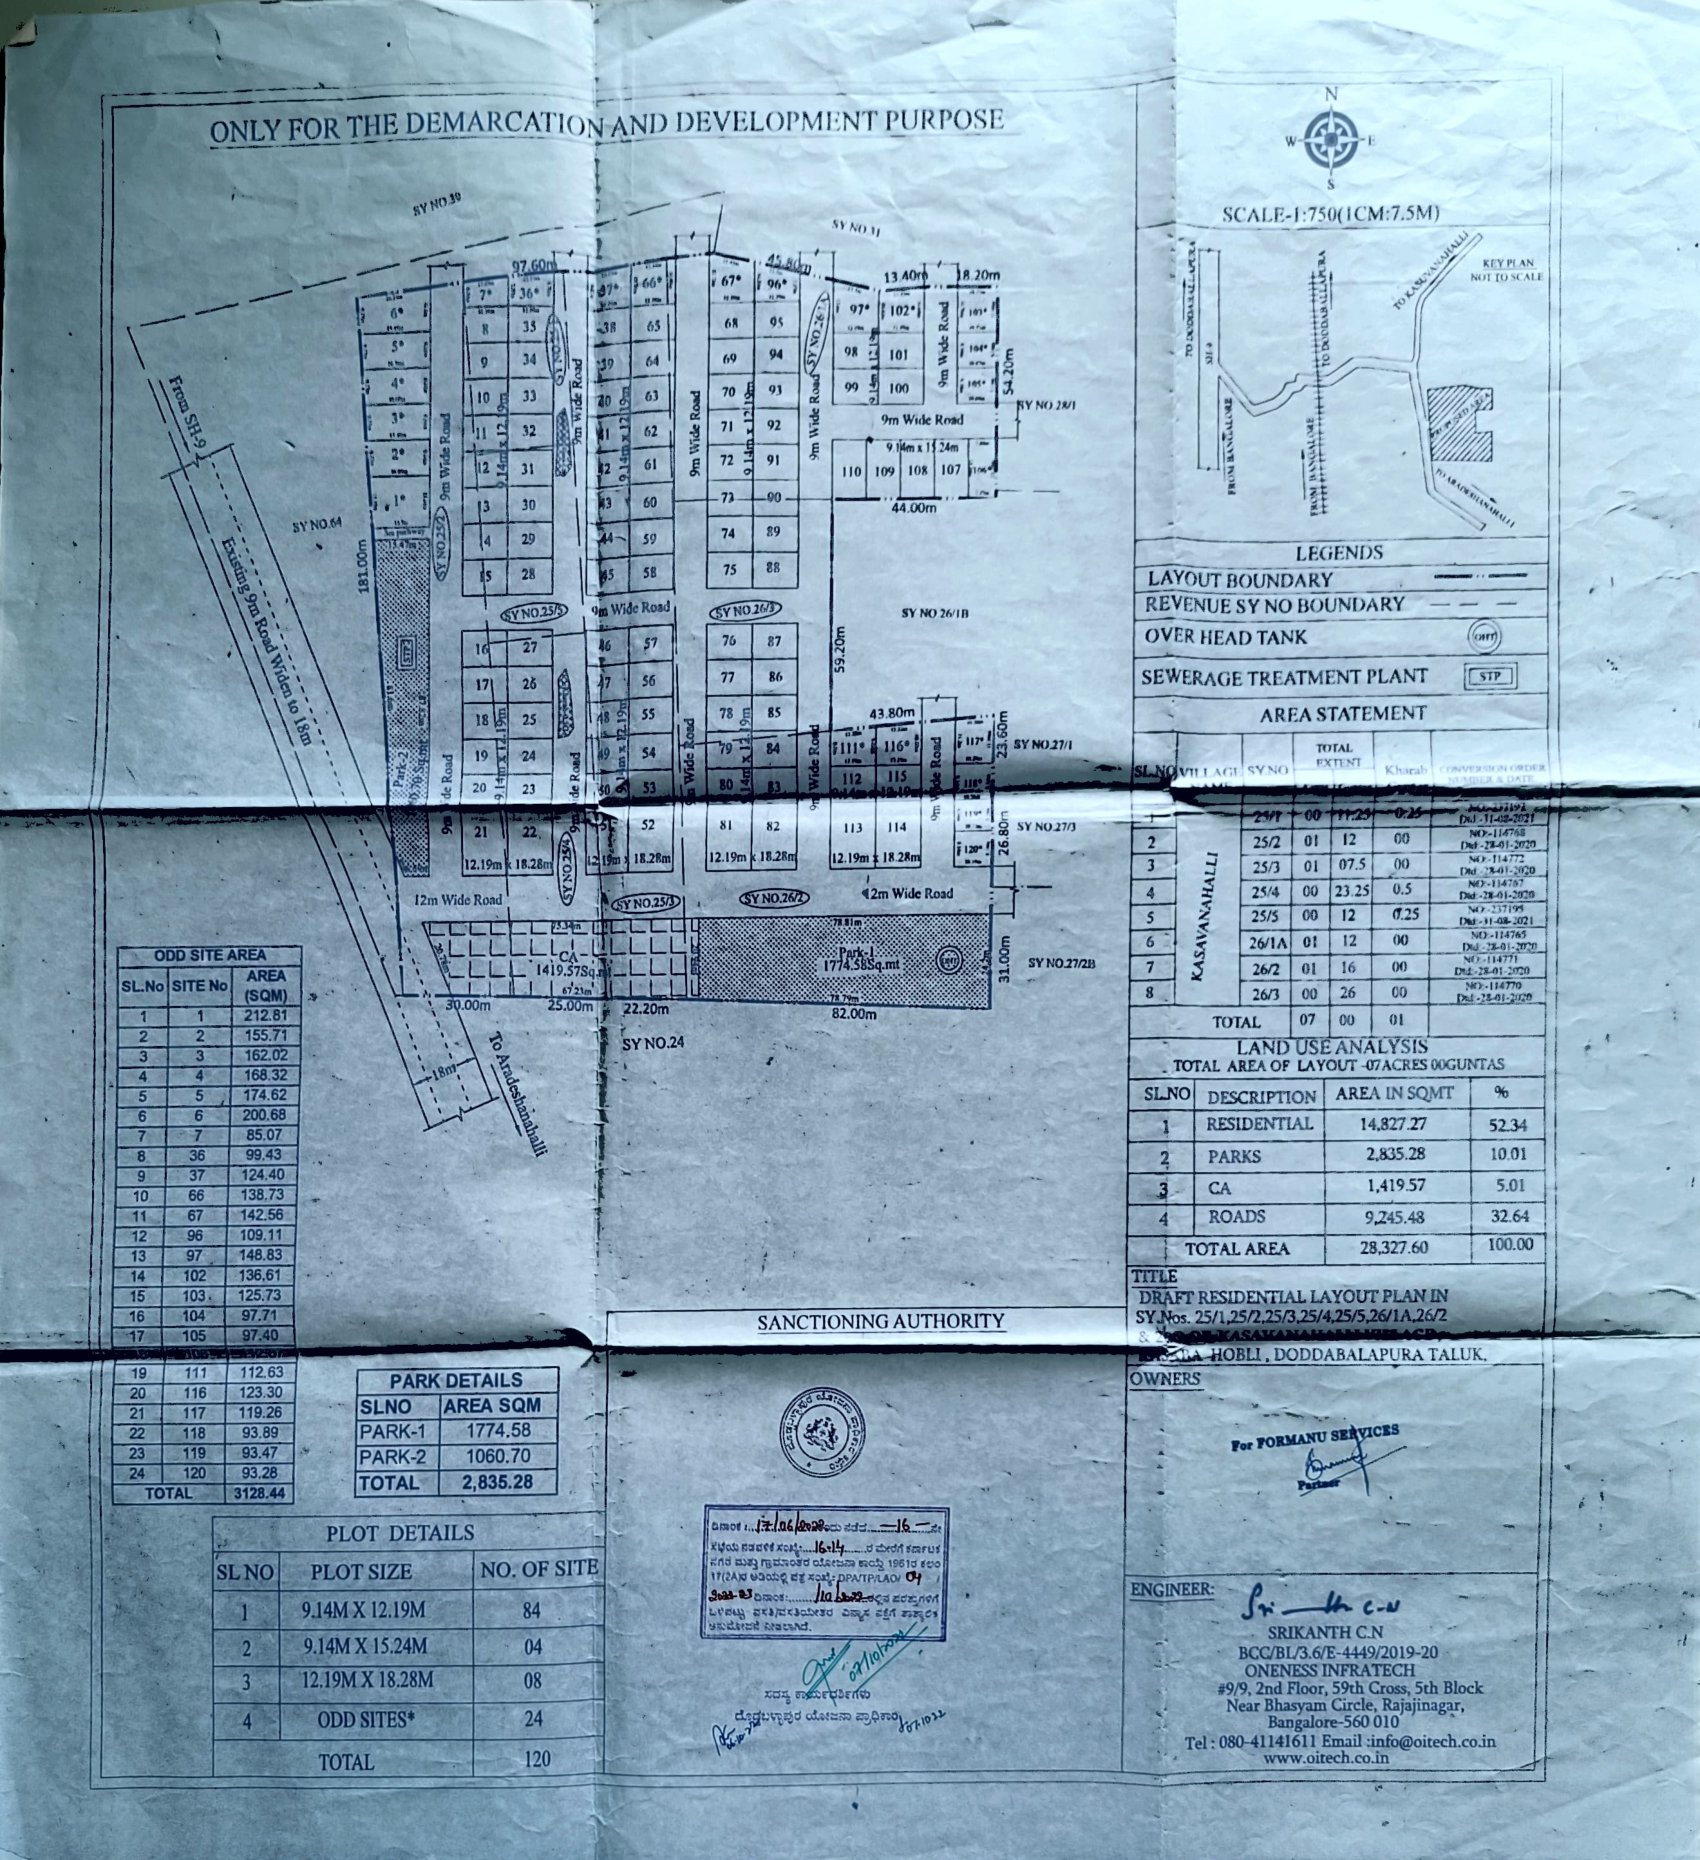 ONLY FOR THE DEMARCATION AND DEVELOPMENT PURPOSE
N
W E
S
SCALE-1:750(1CM:7.5M)
KEY PLAN
NOT TO SCALE
TO DODDABALLAPURA
SH-9
FROM BANGALORE
TO DODDABALLAPURA
FROM BANGALORE
TO KASUVANAHALLI
PROPOSED AREA
TO ARADESHANAHALLI
SY NO.39
SY NO.31
97.60m
45.80m
13.40m
18.20m
54.20m
SY NO.28/1
From SH-9
Existing 9m Road Widen to 18m
SY NO.64
181.00m
6* 7* 36* 37* 66* 67* 96* 97* 102* 103*
5* 8 35 38 65 68 95 98 101 104*
4* 9 34 39 64 69 94 99 100 105*
3* 10 33 40 63 70 93
2* 11 32 41 62 71 92
12 31 42 61 72 91 110 109 108 107 106*
1* 13 30 43 60 73 90
14 29 44 59 74 89
15 28 45 58 75 88
9m Wide Road
9m Wide Road
9m Wide Road
9m Wide Road
9m Wide Road
9m Wide Road
9.14m x 12.19m
9.14m x 12.19m
9.14m x 12.19m
9.14m x 12.19m
9.14m x 15.24m
SY NO.26/1A
SY NO.25/2
15.47m
44.00m
SY NO.25/5
9m Wide Road
SY NO.26/3
SY NO 26/1B
59.20m
STP
16 27 46 57 76 87
17 26 47 56 77 86
18 25 48 55 78 85
19 24 49 54 79 84 111* 116* 117*
20 23 50 53 80 83 112 115 118*
21 22 51 52 81 82 113 114 119*
120*
12.19m x 18.28m
12.19m x 18.28m
12.19m x 18.28m
12.19m x 18.28m
9m Wide Road
9m Wide Road
9m Wide Road
9m Wide Road
9m Wide Road
9.14m x 12.19m
9.14m x 12.19m
9.14m x 12.19m
9.14m x 12.19m
43.80m
23.60m
SY NO.27/1
26.80m
SY NO.27/3
Park-2
SY NO.25/4
12m Wide Road
SY NO.25/3
SY NO.26/2
12m Wide Road
75.34m
CA
1419.57Sq.mt
67.23m
78.81m
Park-1
1774.58Sq.mt
OHT
78.79m
31.00m
SY NO.27/2B
30.00m
25.00m
22.20m
82.00m
SY NO.24
18m
To Aradeshanahalli
LEGENDS
LAYOUT BOUNDARY
REVENUE SY NO BOUNDARY
OVER HEAD TANK OHT
SEWERAGE TREATMENT PLANT STP
AREA STATEMENT
SL.NO VILLAGE NAME SY.NO TOTAL EXTENT Kharab CONVERSION ORDER NUMBER & DATE
KASAVANAHALLI
1 25/1 00 11.25 0.25 Dtd:-31-08-2021
2 25/2 01 12 00 NO:-114768 Dtd:-28-01-2020
3 25/3 01 07.5 00 NO:-114772 Dtd:-28-01-2020
4 25/4 00 23.25 0.5 NO:-114767 Dtd:-28-01-2020
5 25/5 00 12 0.25 NO:-237195 Dtd:-31-08-2021
6 26/1A 01 12 00 NO:-114765 Dtd:-28-01-2020
7 26/2 01 16 00 NO:-114771 Dtd:-28-01-2020
8 26/3 00 26 00 NO:-114770 Dtd:-28-01-2020
TOTAL 07 00 01
LAND USE ANALYSIS
TOTAL AREA OF LAYOUT -07ACRES 00GUNTAS
SL.NO DESCRIPTION AREA IN SQMT %
1 RESIDENTIAL 14,827.27 52.34
2 PARKS 2,835.28 10.01
3 CA 1,419.57 5.01
4 ROADS 9,245.48 32.64
TOTAL AREA 28,327.60 100.00
TITLE
DRAFT RESIDENTIAL LAYOUT PLAN IN
SY.Nos. 25/1,25/2,25/3,25/4,25/5,26/1A,26/2
& KASAVANAHALLI VILLAGE
KASABA HOBLI , DODDABALAPURA TALUK,
OWNERS
For FORMANU SERVICES
Partner
ENGINEER:
SRIKANTH C.N
BCC/BL/3.6/E-4449/2019-20
ONENESS INFRATECH
#9/9, 2nd Floor, 59th Cross, 5th Block
Near Bhasyam Circle, Rajajinagar,
Bangalore-560 010
Tel : 080-41141611 Email :info@oitech.co.in
www.oitech.co.in
ODD SITE AREA
SL.No SITE No AREA (SQM)
1 1 212.81
2 2 155.71
3 3 162.02
4 4 168.32
5 5 174.62
6 6 200.68
7 7 85.07
8 36 99.43
9 37 124.40
10 66 138.73
11 67 142.56
12 96 109.11
13 97 148.83
14 102 136.61
15 103 125.73
16 104 97.71
17 105 97.40
19 111 112.63
20 116 123.30
21 117 119.26
22 118 93.89
23 119 93.47
24 120 93.28
TOTAL 3128.44
PARK DETAILS
SLNO AREA SQM
PARK-1 1774.58
PARK-2 1060.70
TOTAL 2,835.28
PLOT DETAILS
SL NO PLOT SIZE NO. OF SITE
1 9.14M X 12.19M 84
2 9.14M X 15.24M 04
3 12.19M X 18.28M 08
4 ODD SITES* 24
TOTAL 120
SANCTIONING AUTHORITY
ದಿನಾಂಕ: 17/06/2022 ರಂದು ನಡೆದ —16— ನೇ
ಸಭೆಯ ನಡವಳಿಕೆ ಸಂಖ್ಯೆ: 16-14 ರ ಮೇರೆಗೆ ಕರ್ನಾಟಕ
ನಗರ ಮತ್ತು ಗ್ರಾಮಾಂತರ ಯೋಜನಾ ಕಾಯ್ದೆ 1961ರ ಕಲಂ
17(2A)ರ ಅಡಿಯಲ್ಲಿ ಪತ್ರ ಸಂಖ್ಯೆ: DPA/TP/LAO/ 04 /
2022-23 ದಿನಾಂಕ: /10/2022 ರಲ್ಲಿನ ಷರತ್ತುಗಳಿಗೆ
ಒಳಪಟ್ಟು ವಸತಿ/ವಸತಿಯೇತರ ವಿನ್ಯಾಸ ನಕ್ಷೆಗೆ ತಾತ್ಕಾಲಿಕ
ಅನುಮೋದನೆ ನೀಡಲಾಗಿದೆ.
07/10/2022
ಸದಸ್ಯ ಕಾರ್ಯದರ್ಶಿಗಳು
ದೊಡ್ಡಬಳ್ಳಾಪುರ ಯೋಜನಾ ಪ್ರಾಧಿಕಾರ